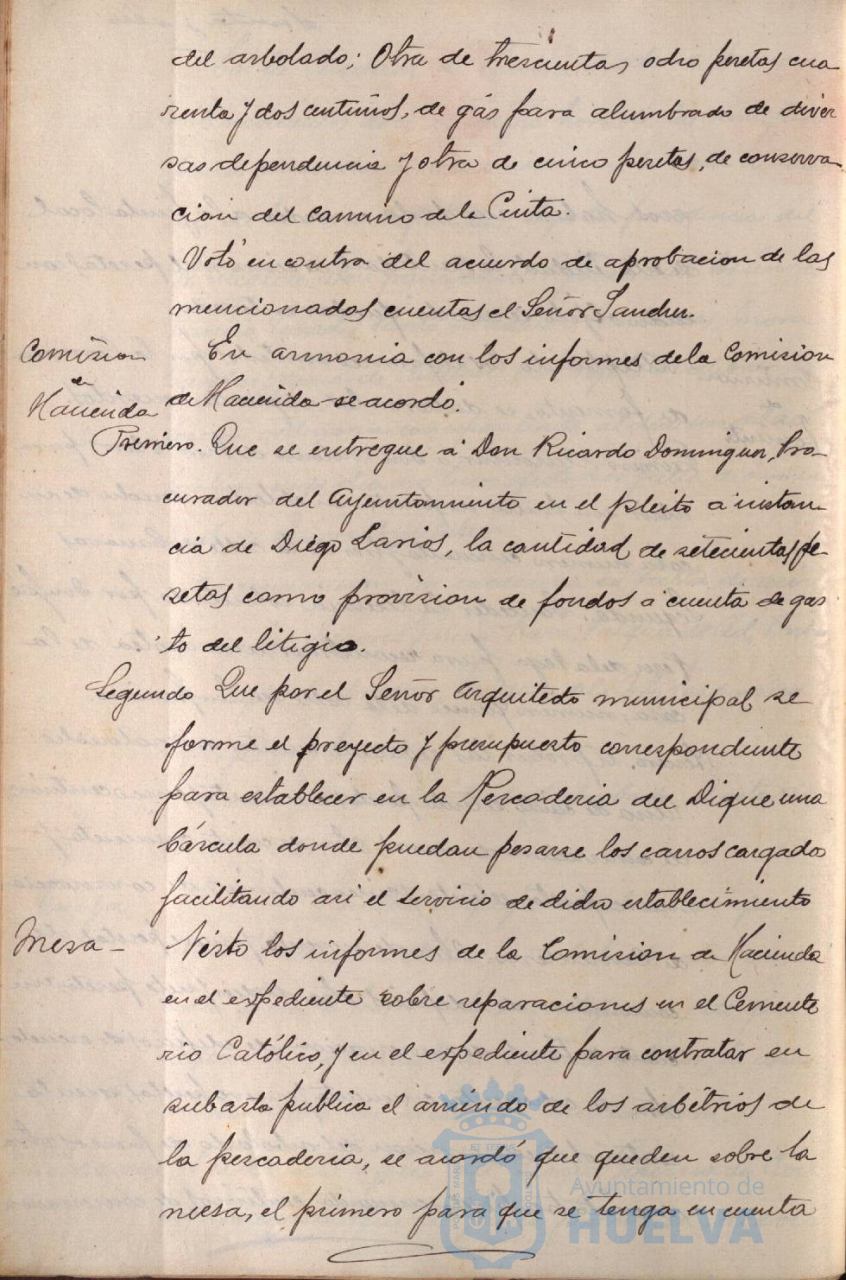 del arbolado; Otra de trescientas ocho pesetas cua
renta y dos centimos, de gas para alumbrado de diver
sas dependencias y otra de cinco pesetas, de conserva
cion del camino de la Cinta.
Votó en contra del acuerdo de aprobacion de las
mencionadas cuentas el Señor Sanchez.
Comision
de
Hacienda
En armonia con los informes de la Comision
de Hacienda se acordó.
Primero. Que se entregue á Don Ricardo Dominguez, Pro
curador del Ayuntamiento en el pleito á instan
cia de Diego Larios, la cantidad de setecientas pe
setas como provision de fondos á cuenta de gas
to del litigio.
Segundo Que por el Señor Arquitecto municipal se
forme el proyecto y presupuesto correspondiente
para establecer en la Pescaderia del Dique una
báscula donde puedan pesarse los carros cargado
facilitando asi el servicio de dicho establecimiento
Mesa-
Visto los informes de la Comision de Hacienda
en el expediente sobre reparaciones en el Cemente
rio Católico, y en el expediente para contratar en
subasta publica el arriendo de los arbitrios de
la pescaderia, se acordó que queden sobre la
mesa, el primero para que se tenga en cuenta
Ayuntamiento de
HUELVA